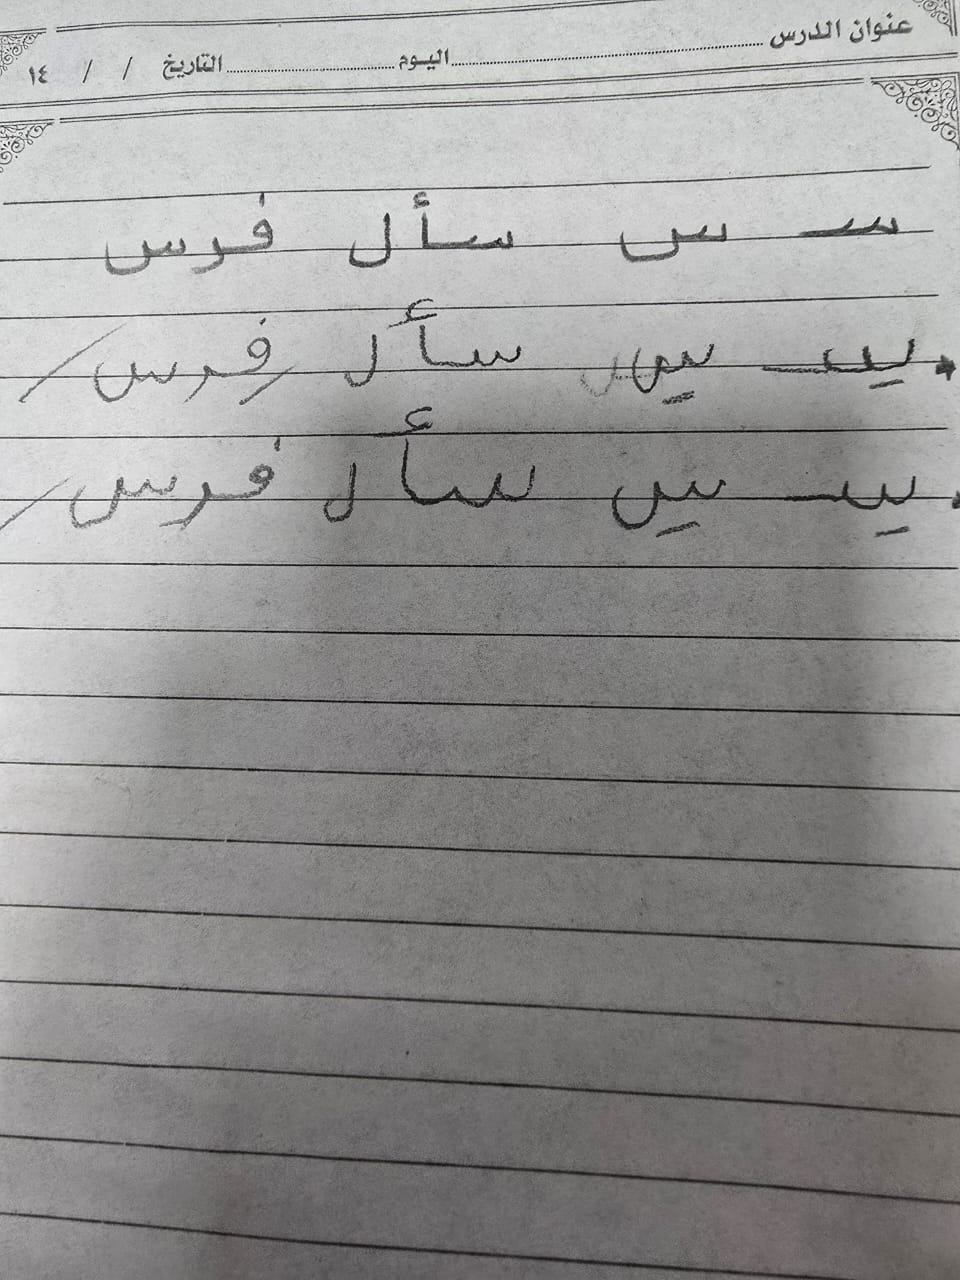 عنوان الدرس ............ اليوم ............ التاريخ / / ١٤
سـ س سأل فرس
سـ س سأل فرس
سـ س سأل فرس